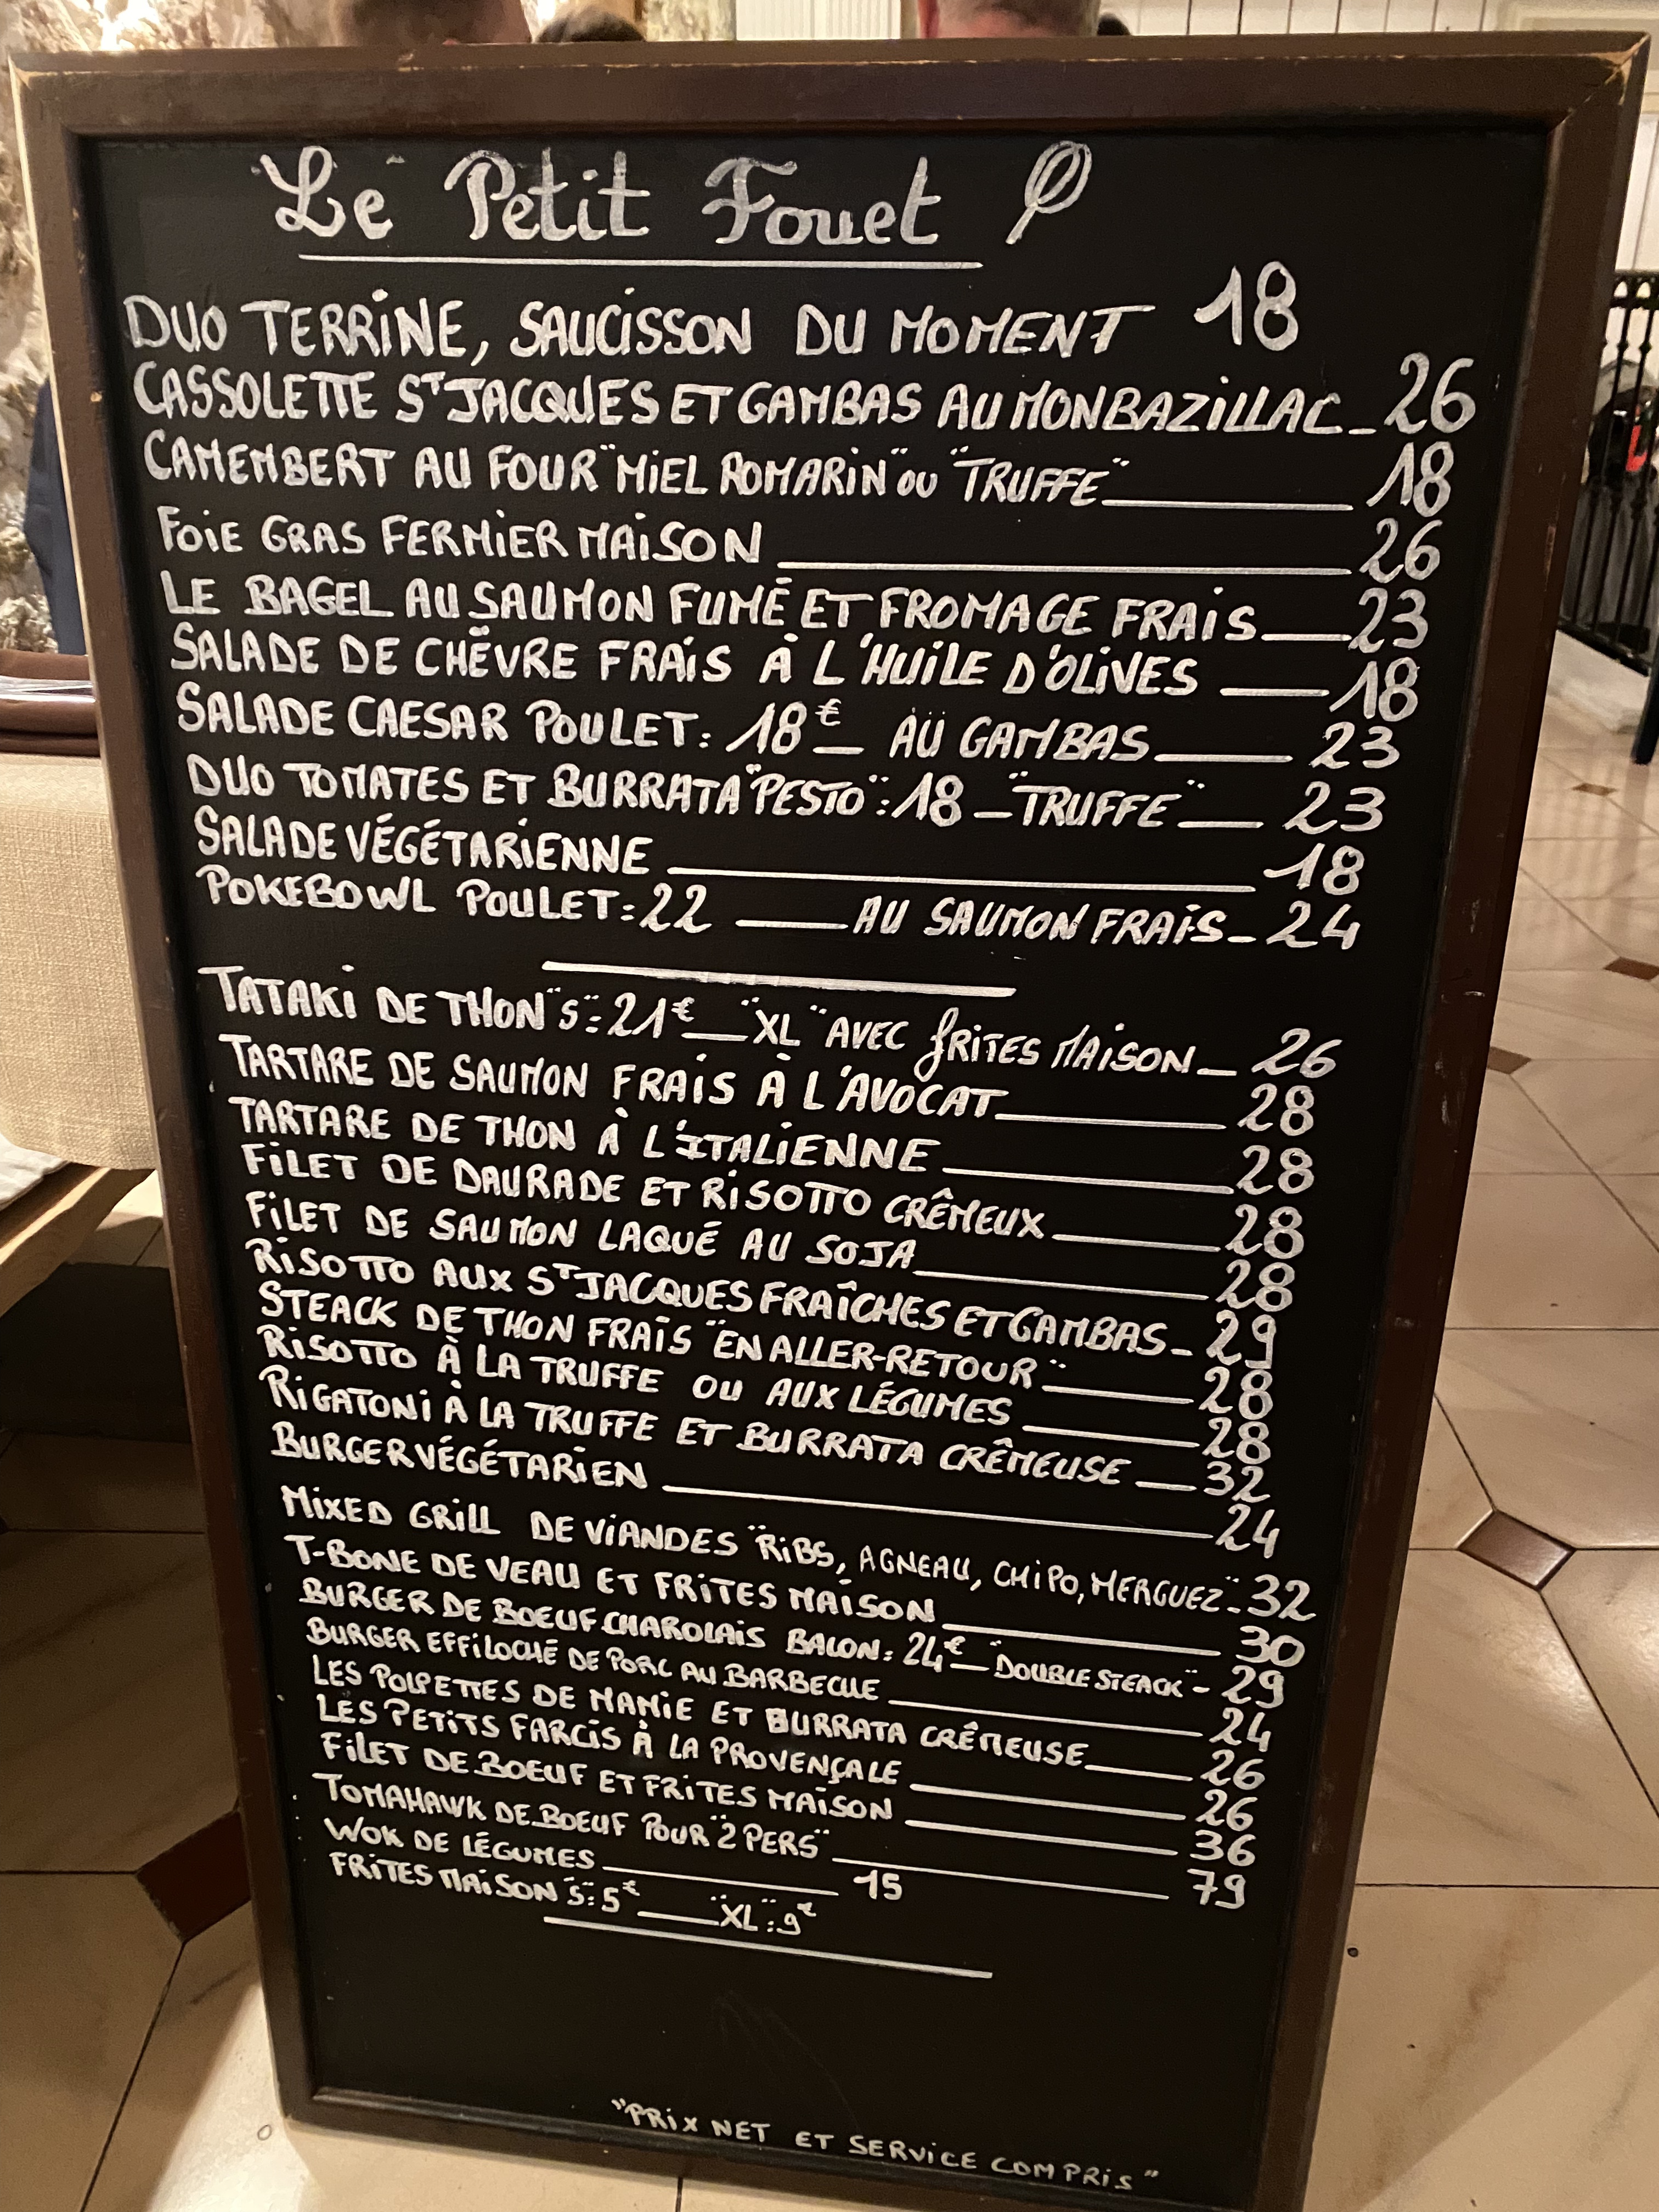 Le Petit Fouet
DUO TERRINE, SAUCISSON DU MOMENT 18
CASSOLETTE ST JACQUES ET GAMBAS AU MONBAZILLAC_26
CAMEMBERT AU FOUR "MIEL ROMARIN" OU "TRUFFE"____18
FOIE GRAS FERMIER MAISON____26
LE BAGEL AU SAUMON FUMÉ ET FROMAGE FRAIS__23
SALADE DE CHÈVRE FRAIS À L'HUILE D'OLIVES __18
SALADE CAESAR POULET: 18€_ AU GAMBAS___ 23
DUO TOMATES ET BURRATA "PESTO": 18 _"TRUFFE"__ 23
SALADE VÉGÉTARIENNE ____18
POKEBOWL POULET: 22 ___AU SAUMON FRAIS_24
TATAKI DE THON "S": 21€__"XL" AVEC FRITES MAISON_ 26
TARTARE DE SAUMON FRAIS À L'AVOCAT____28
TARTARE DE THON À L'ITALIENNE____28
FILET DE DAURADE ET RISOTTO CRÊMEUX____28
FILET DE SAUMON LAQUÉ AU SOJA____28
RISOTTO AUX ST JACQUES FRAÎCHES ET GAMBAS_29
STEACK DE THON FRAIS "EN ALLER-RETOUR"___28
RISOTTO À LA TRUFFE OU AUX LÉGUMES ___28
RIGATONI À LA TRUFFE ET BURRATA CRÊMEUSE __32
BURGER VÉGÉTARIEN ____24
MIXED GRILL DE VIANDES "RIBS, AGNEAU, CHIPO, MERGUEZ"_32
T-BONE DE VEAU ET FRITES MAISON____30
BURGER DE BOEUF CHAROLAIS BACON: 24€_"DOUBLE STEACK"- 29
BURGER EFFILOCHÉ DE PORC AU BARBECUE ____24
LES POLPETTES DE MAMIE ET BURRATA CRÊMEUSE___26
LES PETITS FARCIS À LA PROVENÇALE ____26
FILET DE BOEUF ET FRITES MAISON ____36
TOMAHAWK DE BOEUF POUR "2 PERS" ____79
WOK DE LÉGUMES ____15
FRITES MAISON "S": 5€ ___"XL": 9€
"PRIX NET ET SERVICE COMPRIS"